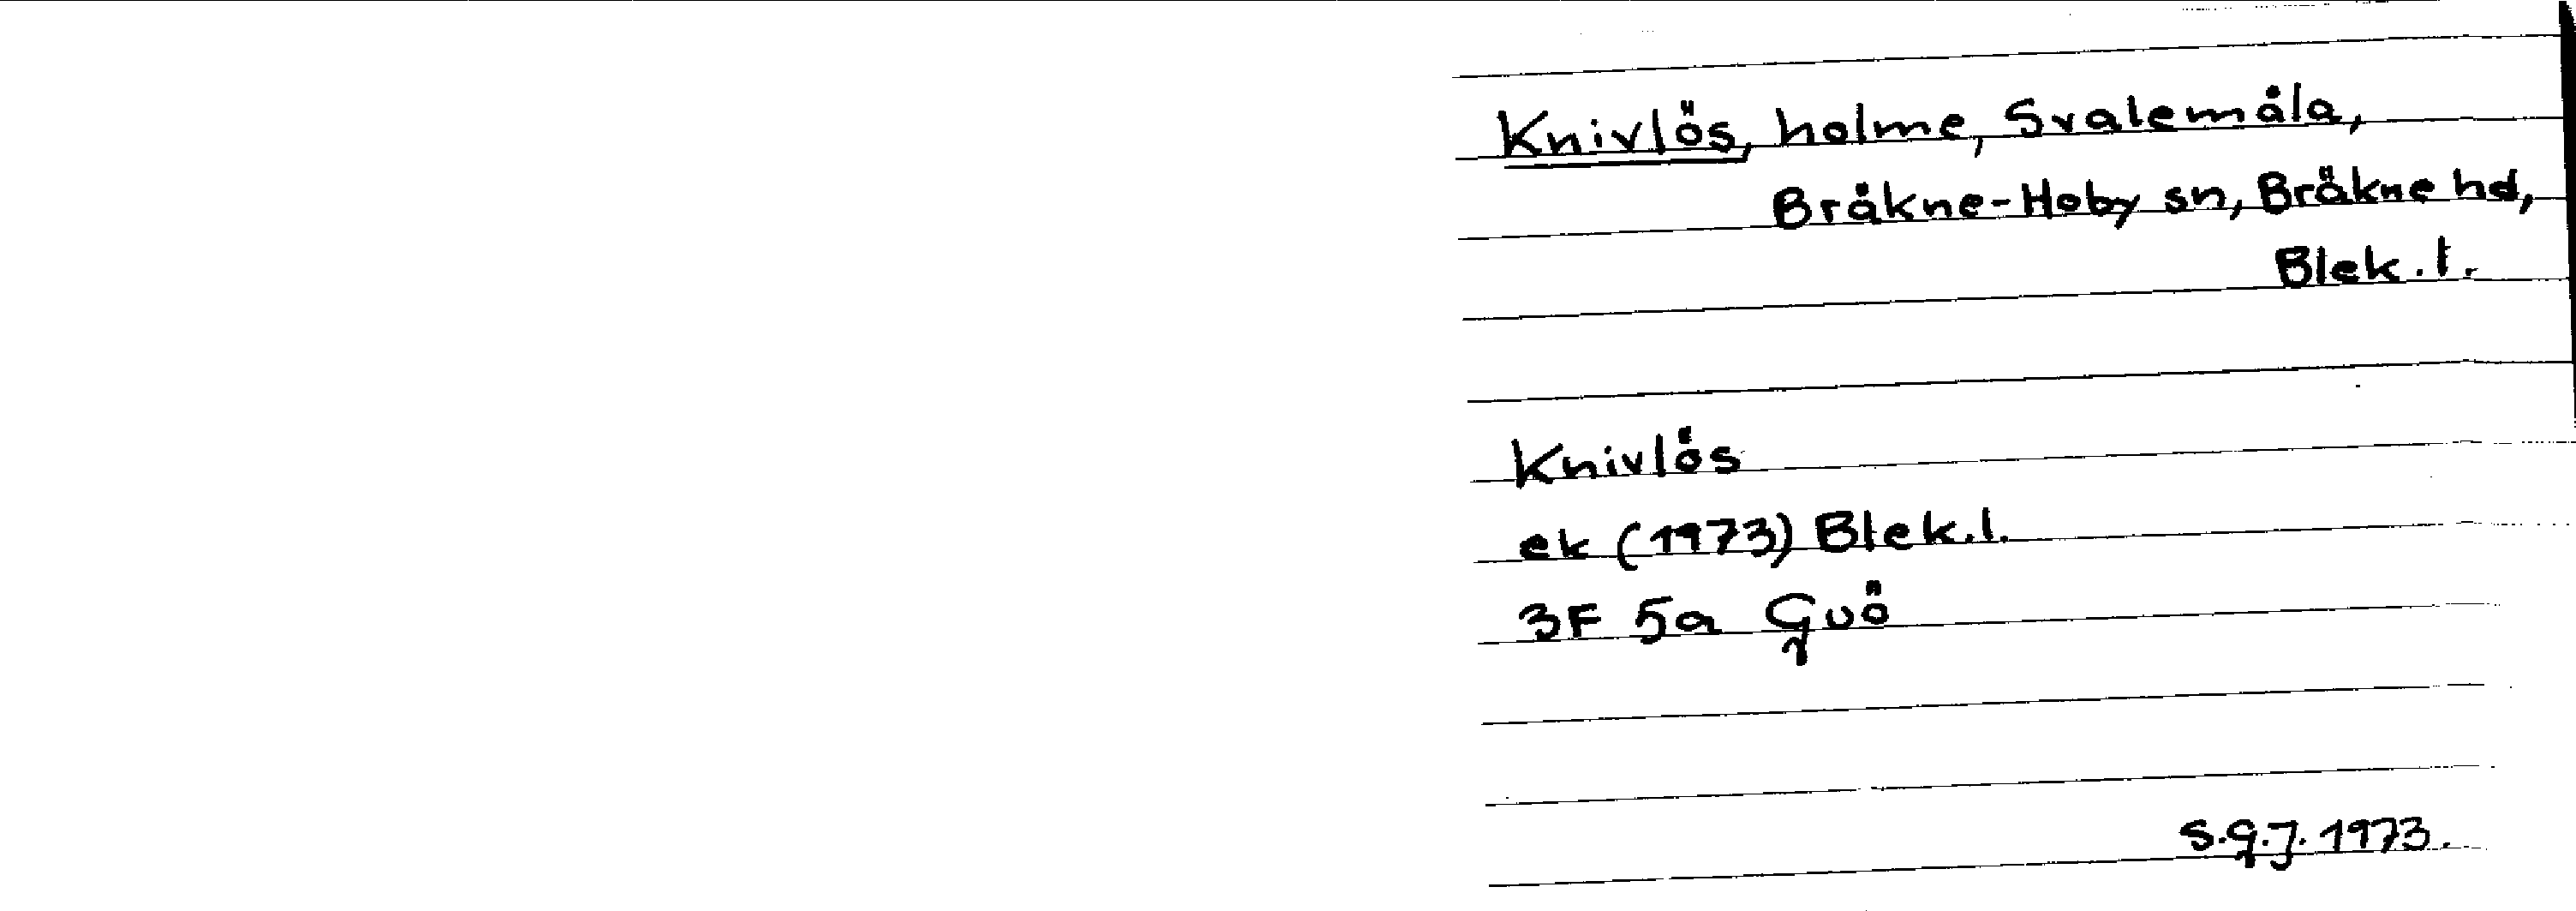 Knivlös, holme, Svalemåla,
Bräkne-Hoby sn, Bräkne hd,
Blek. l.
Knivlös
ek (1973) Blek. l.
3F 5a Guö
S.G.J. 1973.